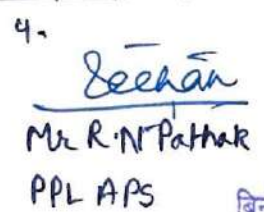 4.
Mr R.N Pathak
PPL APS